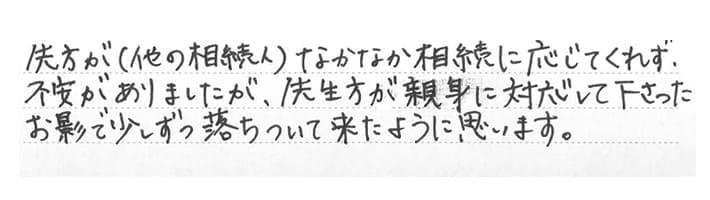 先方が(他の相続人)なかなか相続に応じてくれず、
不安がありましたが、先生方が親身に対応して下さった
お影で少しずつ落ちついて来たように思います。